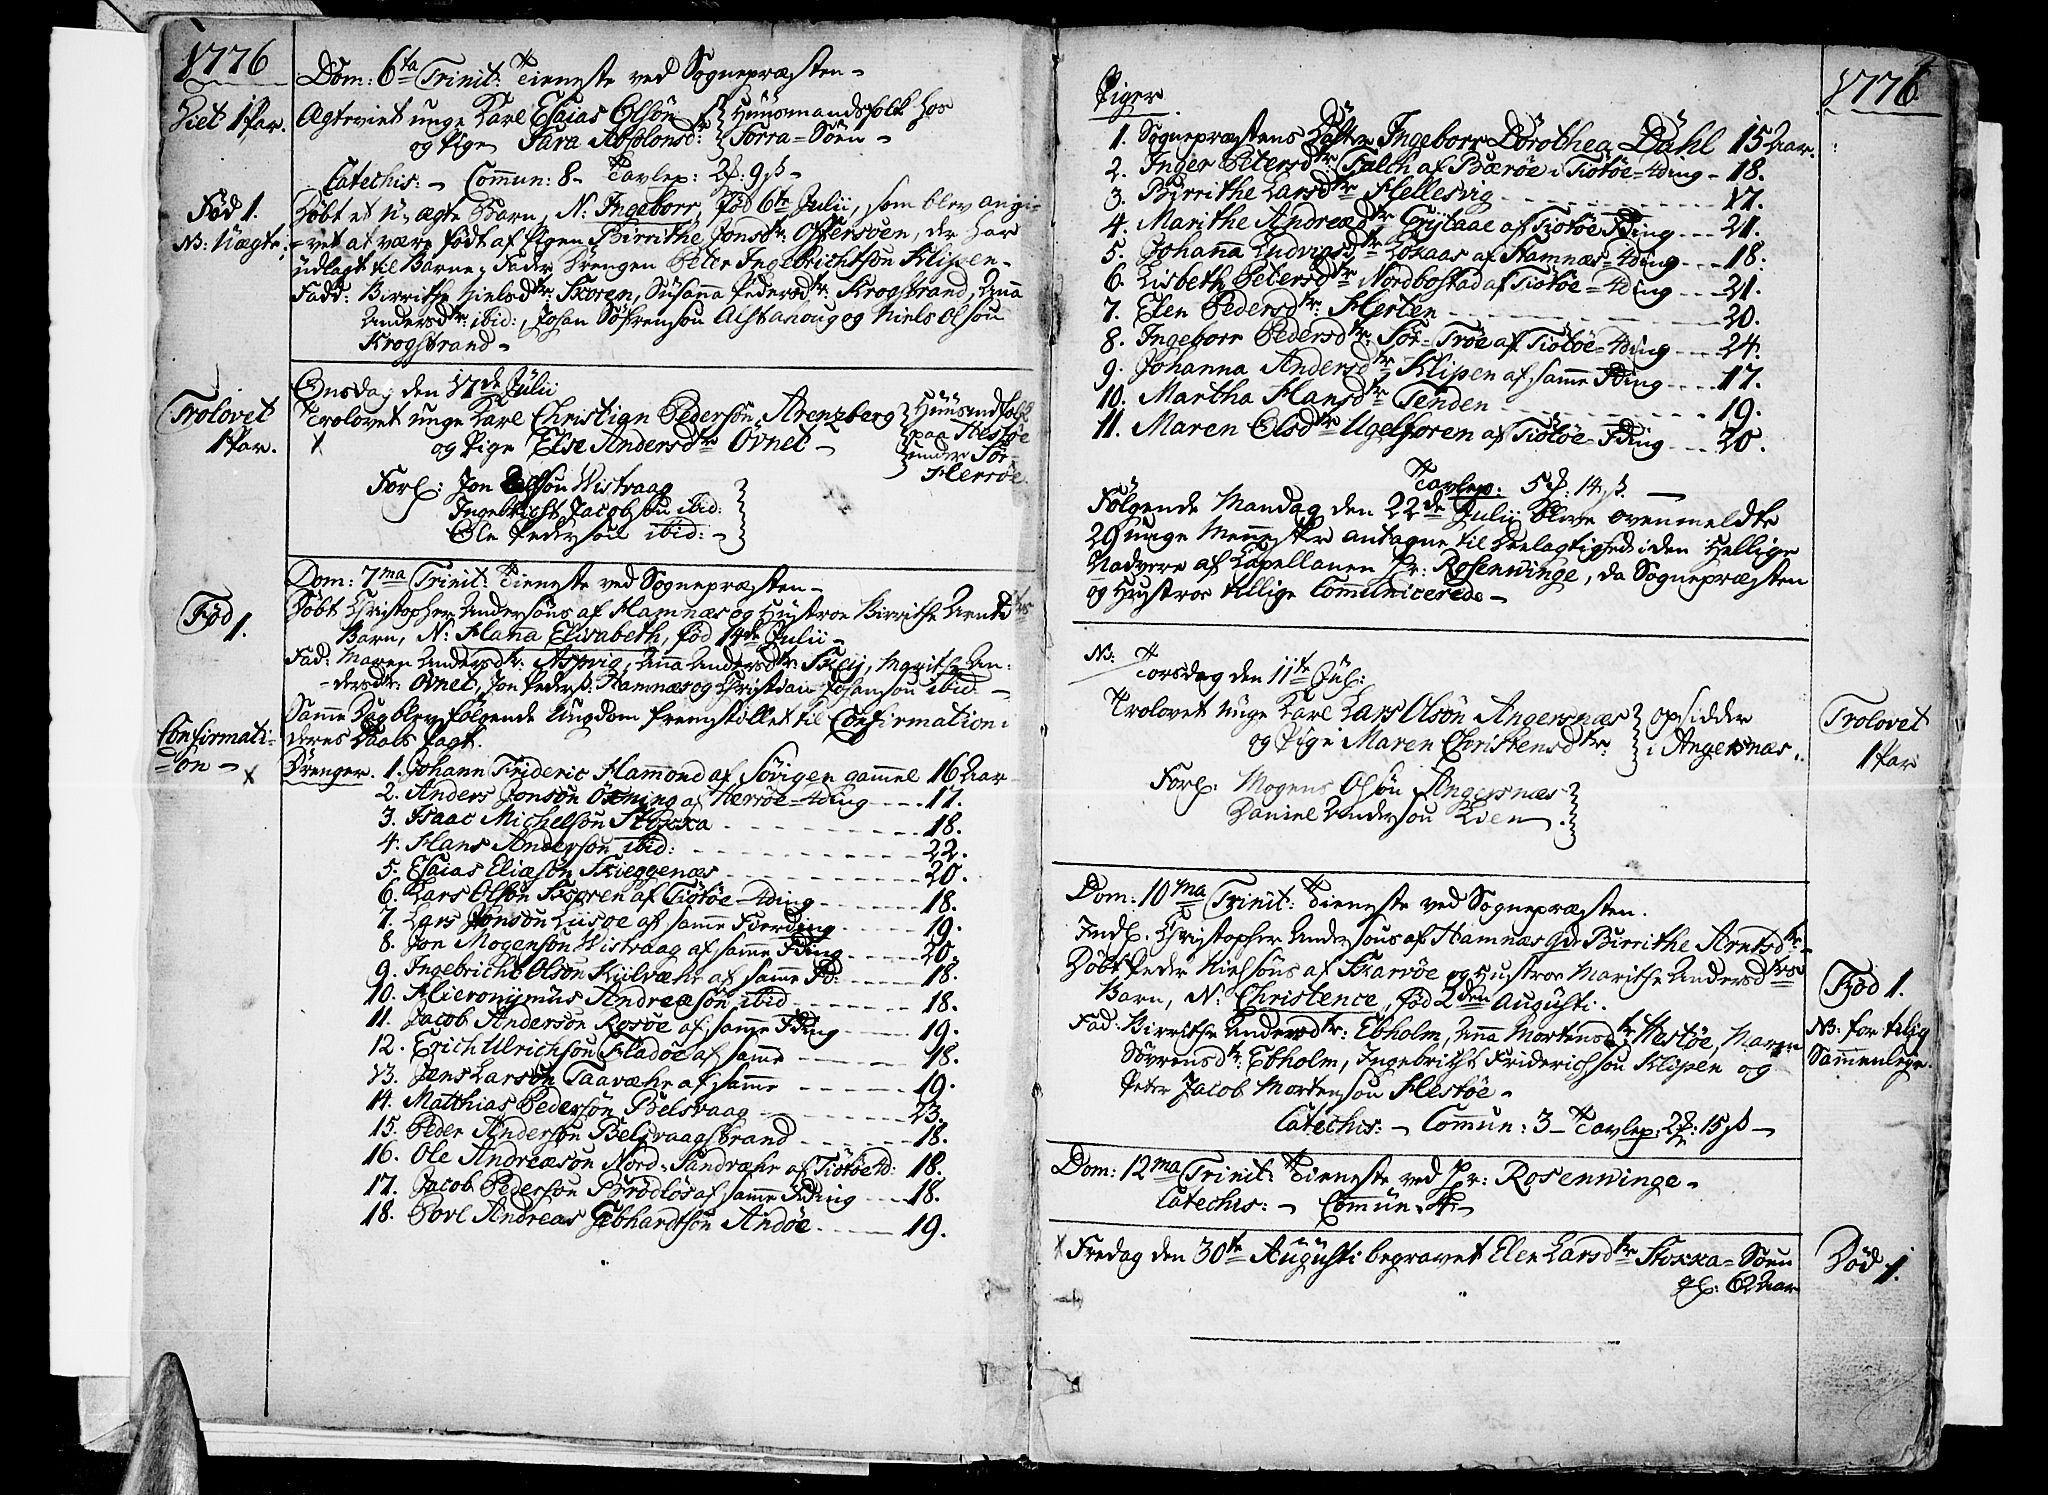 1776
Dom: 6ta Trinit: Tieneste ved Sognepræsten-
Viet 1 Par.
Ægteviet unge Karl Esaias Olsøn } Huusmandsfolk hos
og Pige Sara Absolonsdtr } Torra-Søen -
Catechis: - Commun: 8 - Tavlep: 2 : 9 ß -
Fød 1.
NB: Uægte
Døbt et U-ægte Barn, N: Ingeborr, fød 6te Julii, som blev angi-
-vet at være født af Pigen Birrithe Jonsdtr: Offersøen, der har
udlagt til Barne-Fader Drengen Peter Ingebrichtsøn Klipen-
Fadd: Birrithe Nielsdtr: Skoren, Susanna Pedersdtr: Krogstrand, Anna
Andersdtr: ibid:, Johan Søfrensøn Alstahoug og Niels Olsøn
Krogstrand -
Onsdag den 17de Julii
Trolovet
1 Par.
Trolovet unge Karl Christian Pedersøn Arentzberg } Huusmdfolk
og Pige Else Andersdtr Øvnet - } paa Hestøe
under Sør-
Herrøe.
Forl: Jon Olsøn Vistraag
Ingebricht Jacobsøn ibid:
Ole Pedersøn ibid: -
Dom: 7ma Trinit: Tieneste ved Sognepræsten -
Fød 1.
Døbt Christopher Andersøns af Hamnæs og Hustroe Birrithe Arntsdtrs
Barn, N: Hana Elisabeth, fød 14de Julii -
Fad: Maren Andersdtr: Aspvig, Anna Andersdtr: Skeij, Marithe An-
-dersdtr: Øvnet, Jon Peders: Hamnæs og Christian Johansøn ibid: -
Confirmati-
on -
Samme Dag blev følgende Ungdom fremstillet til Confirmation i
deres Daabs Pagt.
Drenger. 1. Johann Frideric Hammond af Søvigen gammel 16 Aar
2. Anders Jonsøn Øxning af Herrøe-4ding - - - 17.
3. Isaac Michelsøn Stokka - - - 18.
4. Hans Andersøn ibid: - - - 22.
5. Esaias Eliæsøn Skieggenæs - - - 20.
6. Lars Olsøn Skoren af Tiøtøe-4ding - - - 18.
7. Lars Jonsøn Liisøe af samme Fierding - - - 19.
8. Jon Mogensøn Vistraag af samme Fding - - - 20.
9. Ingebricht Olsøn Kulvæhr af samme Fd: - - - 18.
10. Hieronymus Andreæsøn ibid - - - 18.
11. Jacob Andersøn Rosøe af samme Fding - - - 19.
12. Erich Ulrichsøn Fladøe af samme - - - 18.
13. Jens Larsøn Taarvæhr af samme - - - 19.
14. Matthias Pedersøn Belsvaag - - - 23.
15. Peder Andersøn Belsvaagstrand - - - 18.
16. Ole Andreæsøn Nord-Sandvæhr af Tiøtøe 4d: 18.
17. Jacob Pedersøn Brødløs af samme Fding - - - 18.
18. Povl Andreas Gebhardtsøn Andøe - - - 19.
1776
Piger
1. Sognepræstens Datter Ingeborr Dorothea Dahl 15 Aar.
2. Inger Petersdtr: Falch af Bærøe i Tiøtøe-4ding - 18.
3. Birrithe Larsdtr Hellesvig - - - 17.
4. Marithe Andreædtr Grijtaae af Tiøtøe Fding - - - 21.
5. Johanna Ludvigsdtr Lokaas af Hamnæs-4ding - - - 18.
6. Lisbeth Petersdtr Nordbostad af Tiøtøe-4ding - - - 21.
7. Elen Pedersdtr: Herten - - - 20.
8. Ingeborr Pedersdtr: Sør-Trøe af Tiøtøe-4ding - - - 24.
9. Johanna Andersdtr Klipen af samme Fding - - - 17.
10. Martha Hansdtr Tenden - - - 19.
11. Maren Olsdtr Ugelforen af Tiøtøe-Fding - - - 20.
Tavlep: 5 : 14 ß. -
Følgende Mandag den 22de Julii bleve ovenmeldte
29 unge Mennesker antagne til Deelagtighed i den Hellige
Nadvere af Capellanen Hr: Rosenvinge, da Sognepræsten
og Hustroe tillige Communicerede -
NB: Torsdag den 11te Jul:
Trolovet
1 Par
Trolovet unge Karl Lars Olsøn Angersnæs } Opsidder
og Pige Maren Christensdtr: } i Angersnæs.
Forl: Mogens Olsøn Angersnæs
Daniel Andersøn Lien
Dom: 10ma Trinit: Tieneste ved Sognepræsten.
Indl. Christopher Andersøns af Hamnæs Qde Birrithe Arntsdtr -
Fød 1.
NB: for tilig
Sammenleye.
Døbt Peder Nielsøns af Skarvøe og Hustroe Marithe Andersdtrs
Barn, N: Christence, fød 2den Augusti.
Fad: Birrithe Andersdtr: Ebholm, Anna Mortensdtr: Hestøe, Maren
Sørensdtr: Ebholm, Ingebricht Friderichsøn Klipen og
Peter Jacob Mortensøn Hestøe -
Catechis: - Commun: 3 - Tavlep: 2 : 15 ß -
Dom: 12ma Trinit: Tieneste ved Hr: Rosenvinge -
Catechis: - Commun: 4 -
Død 1.
Fredag den 30te Augusti begravet Elen Larsdtr Stokka-Søen
gl: 62 Aar